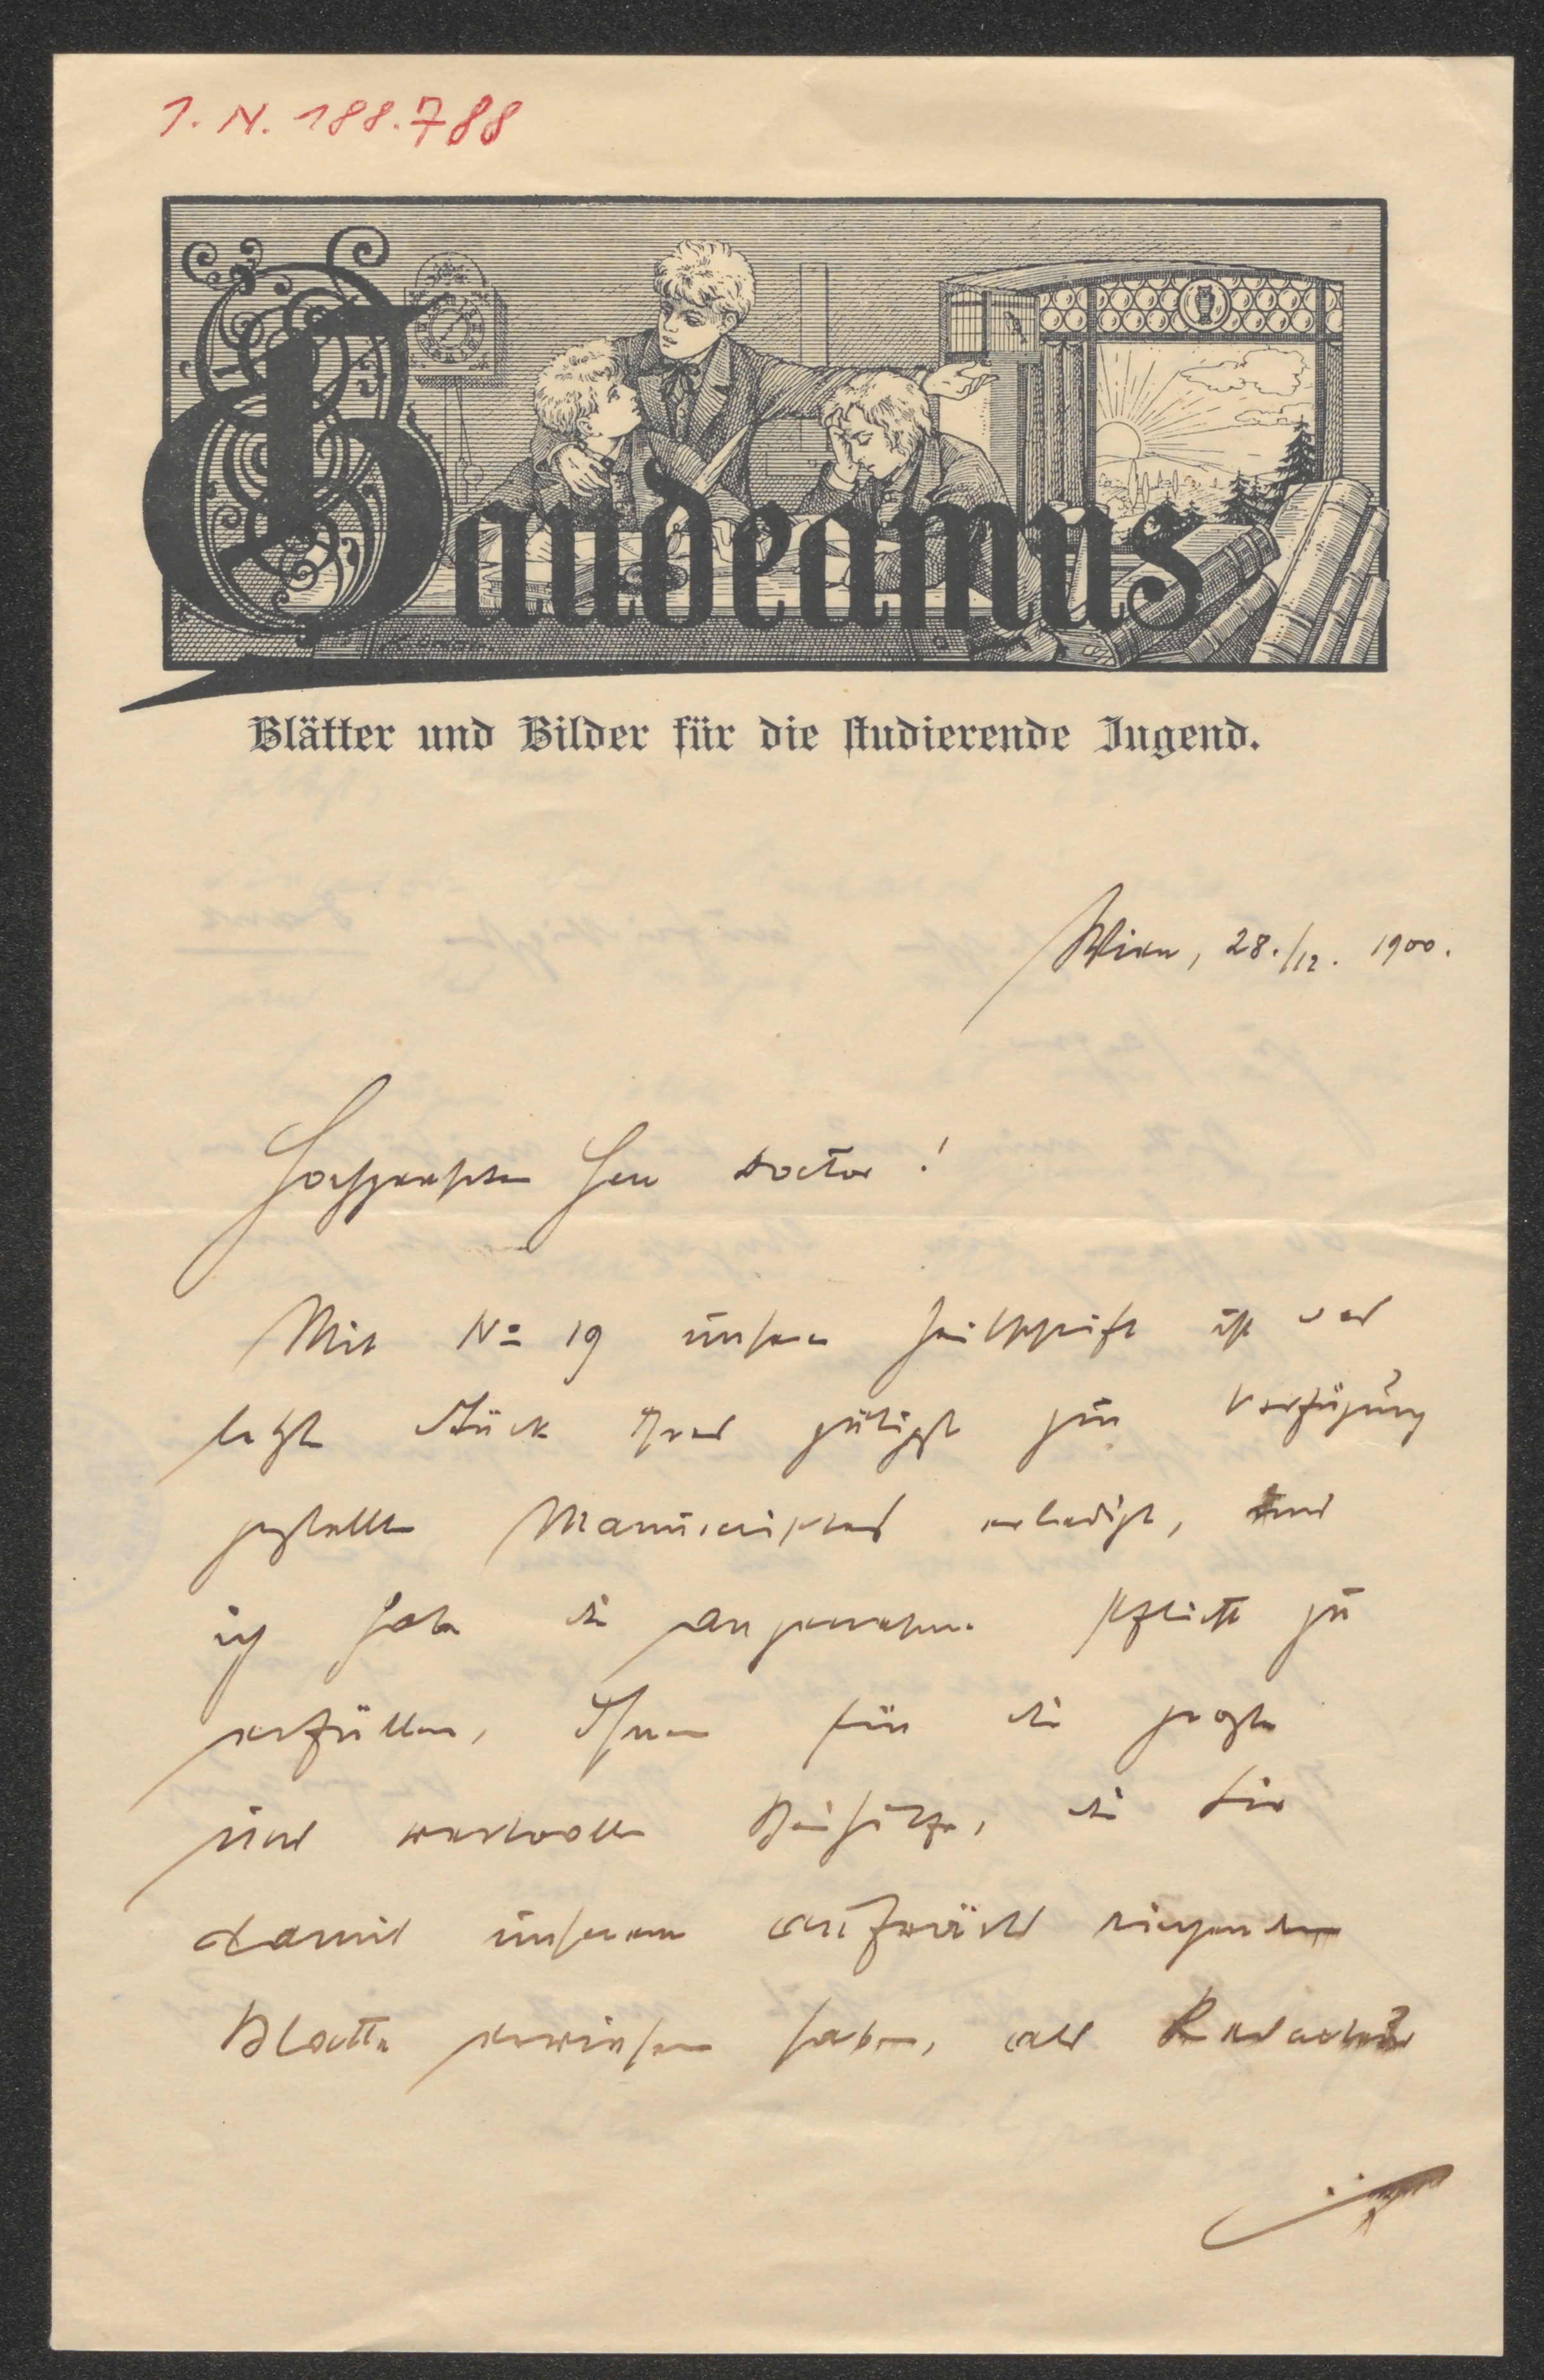 I. N. 188.788
Gaudeamus
Blätter und Bilder für die studierende Jugend.
Wien, 28./12. 1900.
Hochgeehrter Herr Doctor!
Mit No 19 unserer Zeitschrift ist das
letzte Stück Ihres gütigst zur Verfügung
gestellten Manuscriptes erledigt, und
ich habe die angenehme Pflicht zu
erfüllen, Ihnen für die große
und wertvolle Beihilfe, die Sie
damit unserem aufwärts ringenden
Blatte erwiesen haben, als Redacteur